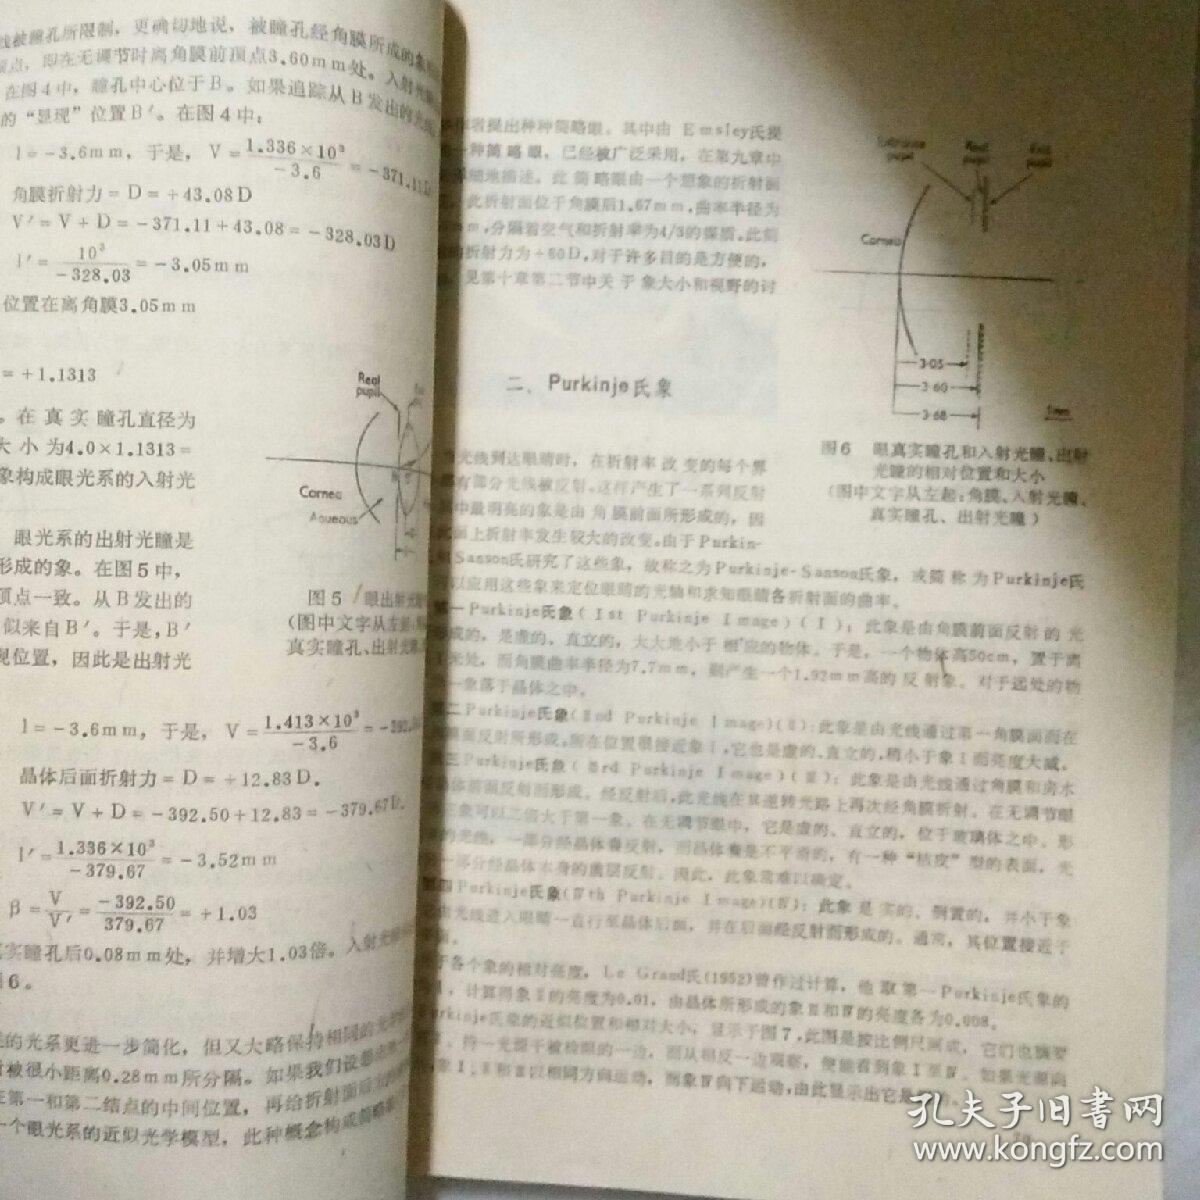 线被瞳孔所限制，更确切地说，被瞳孔经角膜所成的象
顶点，即在无调节时离角膜前顶点3.60mm处。入射光
在图4中，瞳孔中心位于B。如果追踪从B发出的光线
的“显现”位置B′。在图4中：
l=-3.6mm，于是，V= 1.336×10³ / -3.6 =-371.11D
角膜折射力=D=+43.08D
V′=V+D=-371.11+43.08=-328.03D
l′= 10³ / -328.03 =-3.05mm
位置在离角膜3.05mm
=+1.1313
。在真实瞳孔直径为
大小为4.0×1.1313=
象构成眼光系的入射光
眼光系的出射光瞳是
形成的象。在图5中，
顶点一致。从B发出的
似来自B′。于是，B′
现位置，因此是出射光
Real pupil
Cornea
Aqueous
图5 眼出射光
(图中文字从左起:
真实瞳孔、出射光
l=-3.6mm，于是，V= 1.413×10³ / -3.6 =-392.
晶体后面折射力=D=+12.83D.
V′=V+D=-392.50+12.83=-379.67D.
l′= 1.336×10³ / -379.67 =-3.52mm
β= V / V′ = -392.50 / 379.67 =+1.03
真实瞳孔后0.08mm处，并增大1.03倍。入射光
图6。
的光系更进一步简化，但又大略保持相同的光学
被很小距离0.28mm所分隔。如果我们设想
在第一和第二结点的中间位置，再给折射面后
一个眼光系的近似光学模型，此种概念构成简略
作者提出种种简略眼。其中由 Emsley氏提
一种简略眼，已经被广泛采用，在第九章中
细地描述。此简略眼由一个想象的折射面
，此折射面位于角膜后1.67mm，曲率半径为
mm，分隔着空气和折射率为4/3的媒质。此简
的折射力为+60D，对于许多目的是方便的，
见第十章第二节中关于象大小和视野的讨
Entrance pupil
Real pupil
Exit pupil
Cornea
3·05
3·60
3·68
1mm
图6 眼真实瞳孔和入射光瞳、出射
光瞳的相对位置和大小
(图中文字从左起:角膜、入射光瞳、
真实瞳孔、出射光瞳)
二、Purkinje氏象
光线到达眼睛时，在折射率改变的每个界
有部分光线被反射。这样产生了一系列反射
中最明亮的象是由角膜前面所形成的，因
面上折射率发生较大的改变。由于Purkin-
Sanson氏研究了这些象，故称之为Purkinje-Sanson氏象，或简称为Purkinje氏
可以应用这些象来定位眼睛的光轴和求知眼睛各折射面的曲率。
第一Purkinje氏象(Ist Purkinje Image)(I)：此象是由角膜前面反射的光
形成的，是虚的、直立的，大大地小于相应的物体。于是，一个物体高50cm，置于离
米处，而角膜曲率半径为7.7mm，则产生一个1.92mm高的反射象。对于远处的物
一象落于晶体之中。
第二Purkinje氏象(Ⅱnd Purkinje Image)(Ⅱ)：此象是由光线通过第一角膜面而在
膜面反射所形成。所在位置很接近象I，它也是虚的、直立的，稍小于象I而亮度大减。
第三Purkinje氏象(Ⅲrd Purkinje Image)(Ⅲ)：此象是由光线通过角膜和房水
晶体前面反射而形成。经反射后，此光线在其逆转光路上再次经角膜折射。在无调节眼
象可以二倍大于第一象。在无调节眼中，它是虚的、直立的，位于玻璃体之中。形
的光线，一部分经晶体囊反射，而晶体囊是不平滑的，有一种“桔皮”型的表面，光
一部分经晶体本身的表层反射。因此，此象常难以确定。
第四Purkinje氏象(Ⅳth Purkinje Image)(Ⅳ)：此象是实的、倒置的，并小于象
由光线进入眼睛一直行至晶体后面，并在后面经反射而形成的。通常，其位置接近于
面。
于各个象的相对亮度，Le Grand氏(1952)曾作过计算，他取第一Purkinje氏象的
，计算得象Ⅱ的亮度为0.01，由晶体所形成的象Ⅲ和Ⅳ的亮度各为0.008。
Purkinje氏象的近似位置和相对大小，显示于图7，此图是按比例尺画成，它们也摘要
，持一光源于被检眼的一边，而从相反一边观察，便能看到象I至Ⅳ。如果光源向
象I、Ⅱ和Ⅲ以相同方向运动，而象Ⅳ向下运动，由此显示出它是
孔夫子旧书网
www.kongfz.com